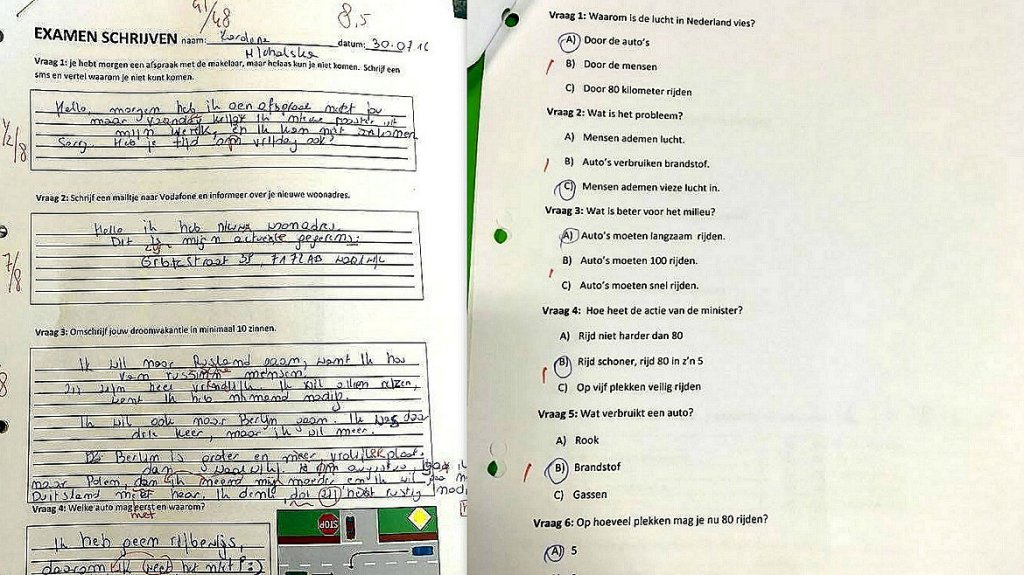 41/48
8,5
EXAMEN SCHRIJVEN naam: datum: 30.07.16
Michalska
Vraag 1: je hebt morgen een afspraak met de makelaar, maar helaas kun je niet komen. Schrijf een
sms en vertel waarom je niet kunt komen.
Hello, morgen heb ik een afspraak met jou
maar vandag krijg ik nieuwe rooster uit
mijn werk, en ik kan niet ankomen
Sorry. Heb je tijd om vrijdag ook?
Vraag 2: Schrijf een mailtje naar Vodafone en informeer over je nieuwe woonadres.
Hello ik heb nieuwe woonadres.
Dit is mijn actuele gegevens:
7/8
Vraag 3: Omschrijf jouw droomvakantie in minimaal 10 zinnen.
Ik wil naar Rusland gaan, want ik hou
van russinnn mensen,
Zij zijn heel vriendlijk. Ik wil allen reizen,
want ik heb niemand nodig.
Ik wil ook naar Berlijn gaan. Ik was daar
drie keer, maar ik wil meer.
De Berlijn is groter en meer vrolijker plaats
dan
naar Polen, dan ik meemd mijn moeder en ik wil
Duitsland met haar. Ik denk, dat zij hebt rustig nodig
Vraag 4: Welke auto mag eerst en waarom?
met
Ik heb geen rijbewijs,
daarom ik weet het niet! :)
STOP
Vraag 1: Waarom is de lucht in Nederland vies?
A) Door de auto's
B) Door de mensen
C) Door 80 kilometer rijden
Vraag 2: Wat is het probleem?
A) Mensen ademen lucht.
B) Auto's verbruiken brandstof.
C) Mensen ademen vieze lucht in.
Vraag 3: Wat is beter voor het milieu?
A) Auto's moeten langzaam rijden.
B) Auto's moeten 100 rijden.
C) Auto's moeten snel rijden.
Vraag 4: Hoe heet de actie van de minister?
A) Rijd niet harder dan 80
B) Rijd schoner, rijd 80 in z'n 5
C) Op vijf plekken veilig rijden
Vraag 5: Wat verbruikt een auto?
A) Rook
B) Brandstof
C) Gassen
Vraag 6: Op hoeveel plekken mag je nu 80 rijden?
A) 5